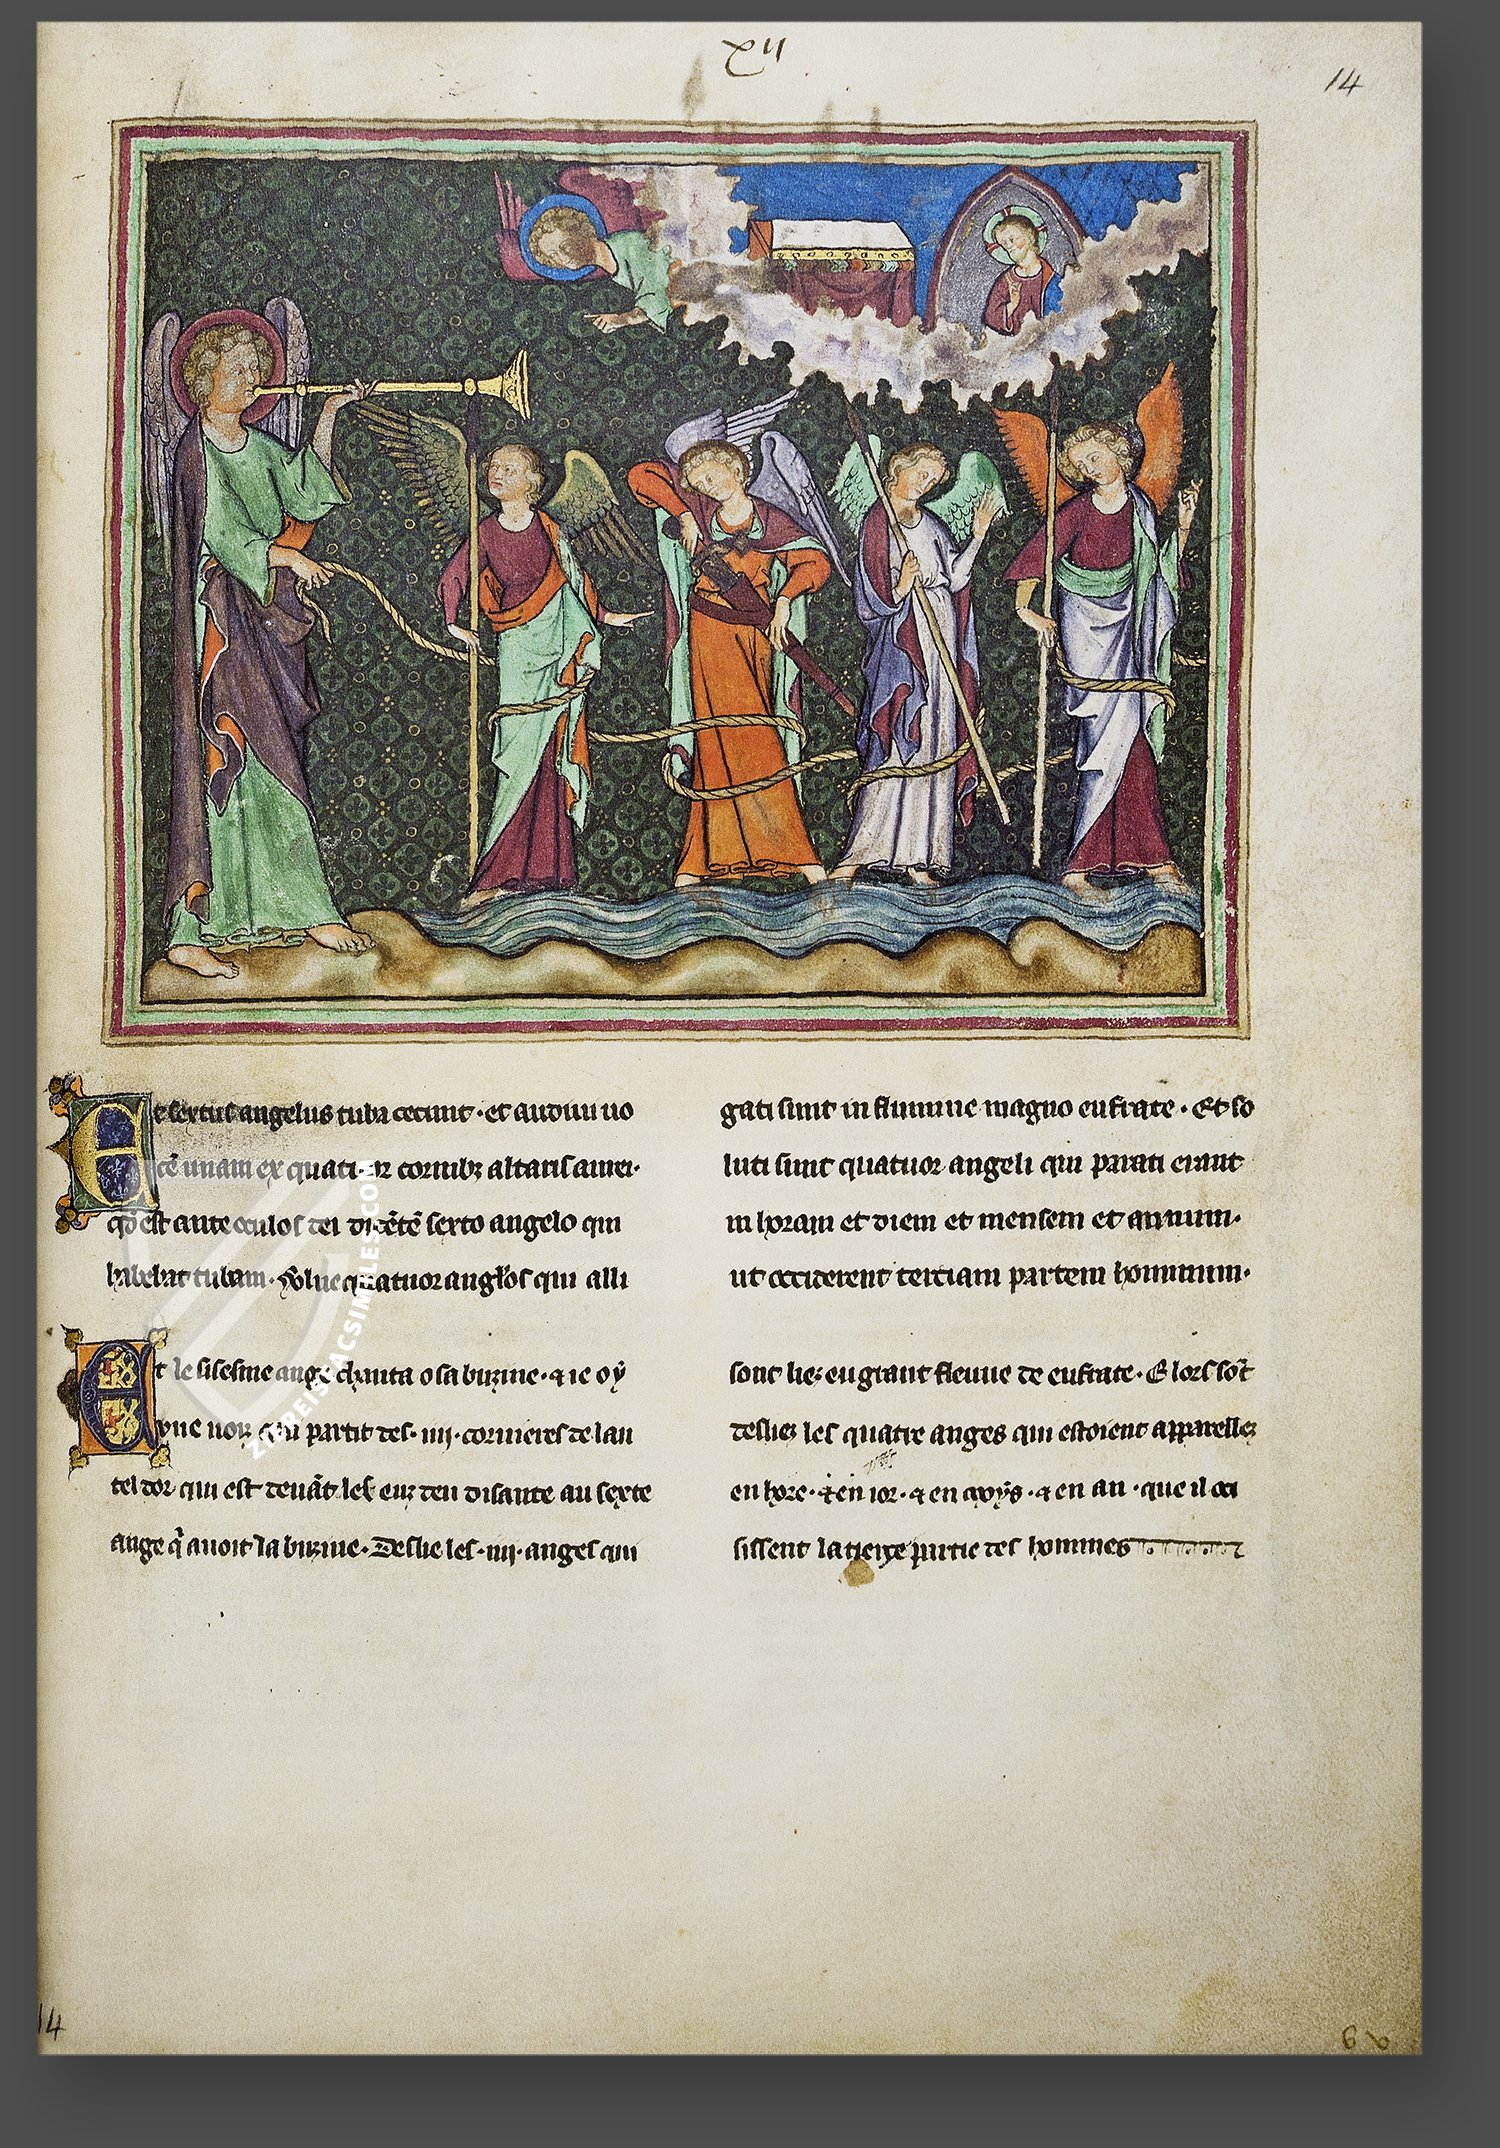 xii
14
Et sextus angelus tuba cecinit · et audiui uo
cē unam ex quatuor cornibꝫ altaris aurei ·
qd̄ est ante oculos dei dicētē sexto angelo qui
habebat tubam · Solue quatuor angl̄os qui alli
gati sunt in flumine magno eufrate · Et so
luti sunt quatuor angeli qui parati erant
in horam et diem et mensem et annum ·
ut occiderent terciam partem hominum ·
Et le sisesme ange chanta o sa buzine · ⁊ ie oẏ
vne uoiz qui partit des · iiij · cornieres de lau
tel dor qui est deuāt les euz deu disante au sexte
ange q̄ auoit la buzine · Deslie les · iiij · anges qui
sont liez en grant fleuue de eufrate · E lors sōt
desliez les quatre anges qui estoient apparellez
en hore · ⁊ en ior · ⁊ en moẏs · ⁊ en an · que il oci
sissent la tierce partie des hommes
ZIEREISFACSIMILES.COM
14